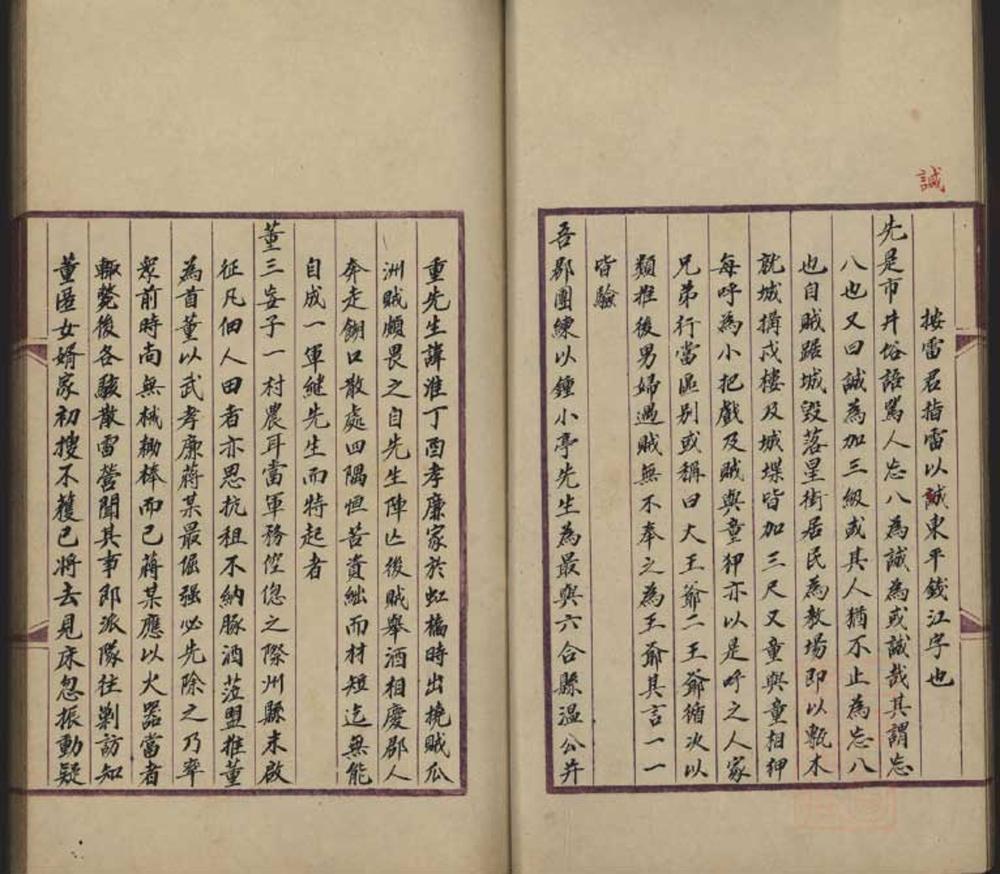 誠
按雷君指雷以誠東平錢江字也
先是市井俗語罵人忘八為誠為或誠哉其謂忘
八也又曰誠為加三級或其人猶不止為忘八
也自賊踞城毀落星街居民為教場即以甎木
就城搆戍樓及城堞皆加三尺又童與童相狎
每呼為小把戲及賊與童狎亦以是呼之人家
兄弟行當區別或稱曰大王爺二王爺循次以
類推後男婦遇賊無不奉之為王爺其言一一
皆驗
吾郡團練以鍾小亭先生為最與六合縣溫公并
重先生諱淮丁酉孝廉家於虹橋時出撓賊瓜
洲賊頗畏之自先生陣亡後賊舉酒相慶郡人
奔走餬口散處四隅恒苦資絀而材短迄無能
自成一軍繼先生而特起者
董三妄子一村農耳當軍務倥傯之際州縣未啟
征凡佃人田者亦思抗租不納豚酒蒞盟推董
為首董以武孝廉蔣某最倔强必先除之乃率
衆前時尚無械鋤棒而已蔣某應以火器當者
輙斃後各駭散雷營聞其事即派隊往剿訪知
董匿女婿家初搜不獲已將去見床忽振動疑